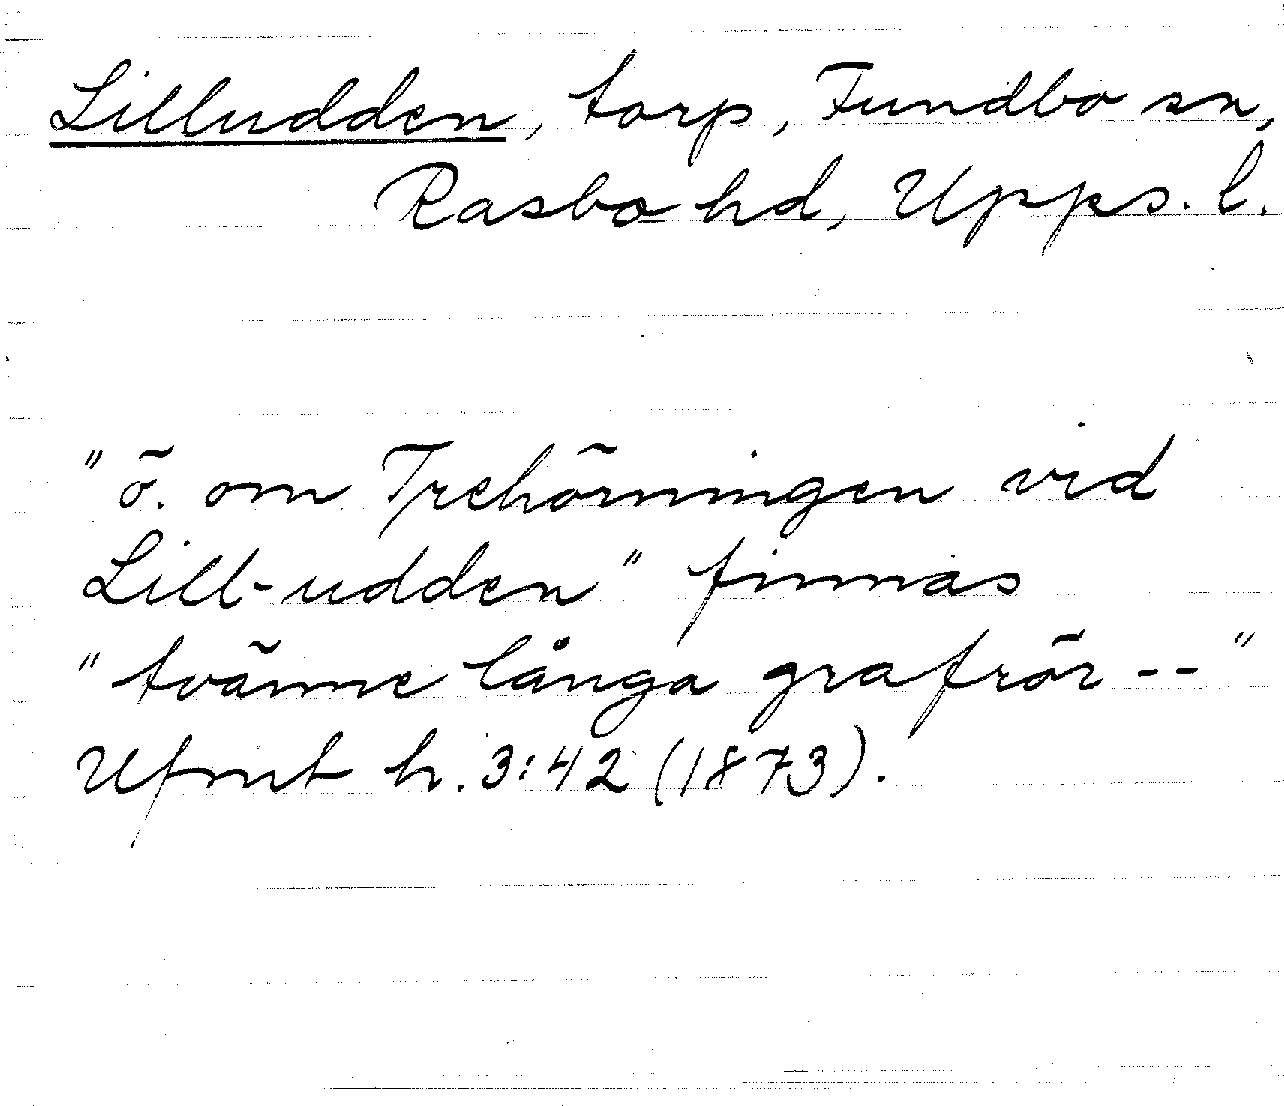 Lilludden, torp, Fundbo sn,
Rasbo hd, Upps. l.
"ö. om Trehörningen vid
Lill-udden" finnas
"tvänne långa grafrör--"
Ufmt h. 3:42 (1873).